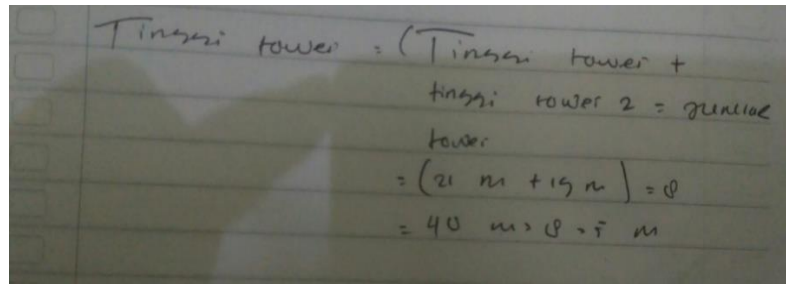 Tinggi tower = (Tinggi tower +
tinggi tower 2 =
tower
= (21 m + 19 m) = 8
= 40 m = 8 = 5 m